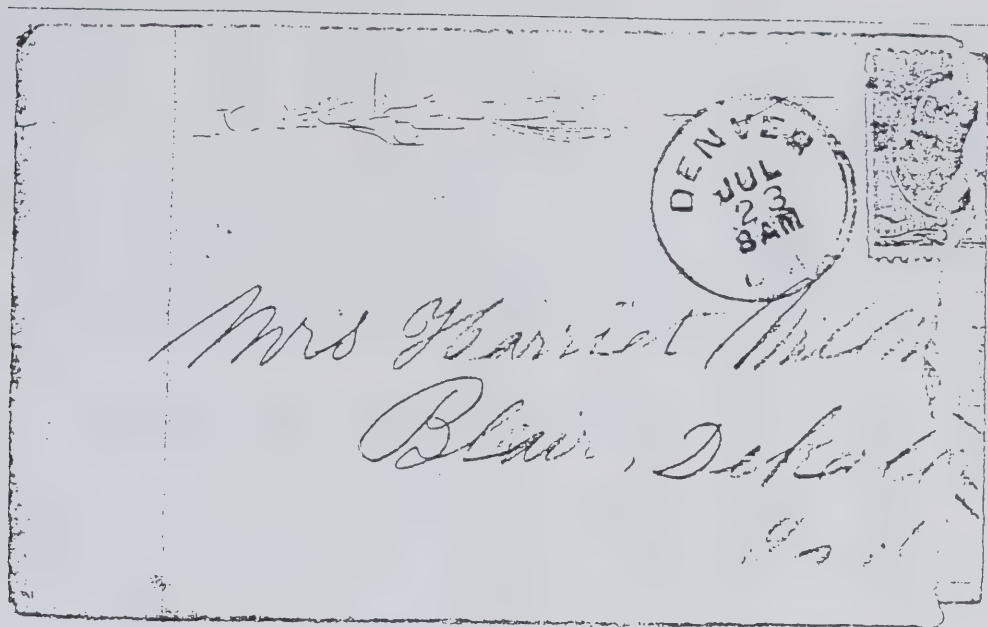 DENVER
JUL
23
8AM
Mrs Harriet
Blair, DeKalb